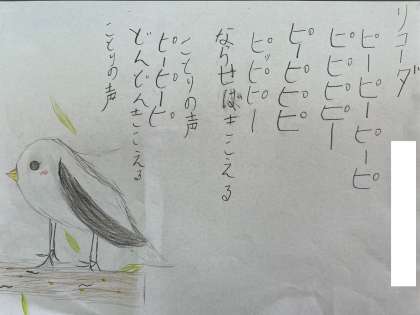 リコーダ
ピーピーピーピ
ピピピピー
ピーピピピ
ピッピピー
ならせばきこえる
ことりの声
ピーピーピ
どんどんきこえる
ことりの声